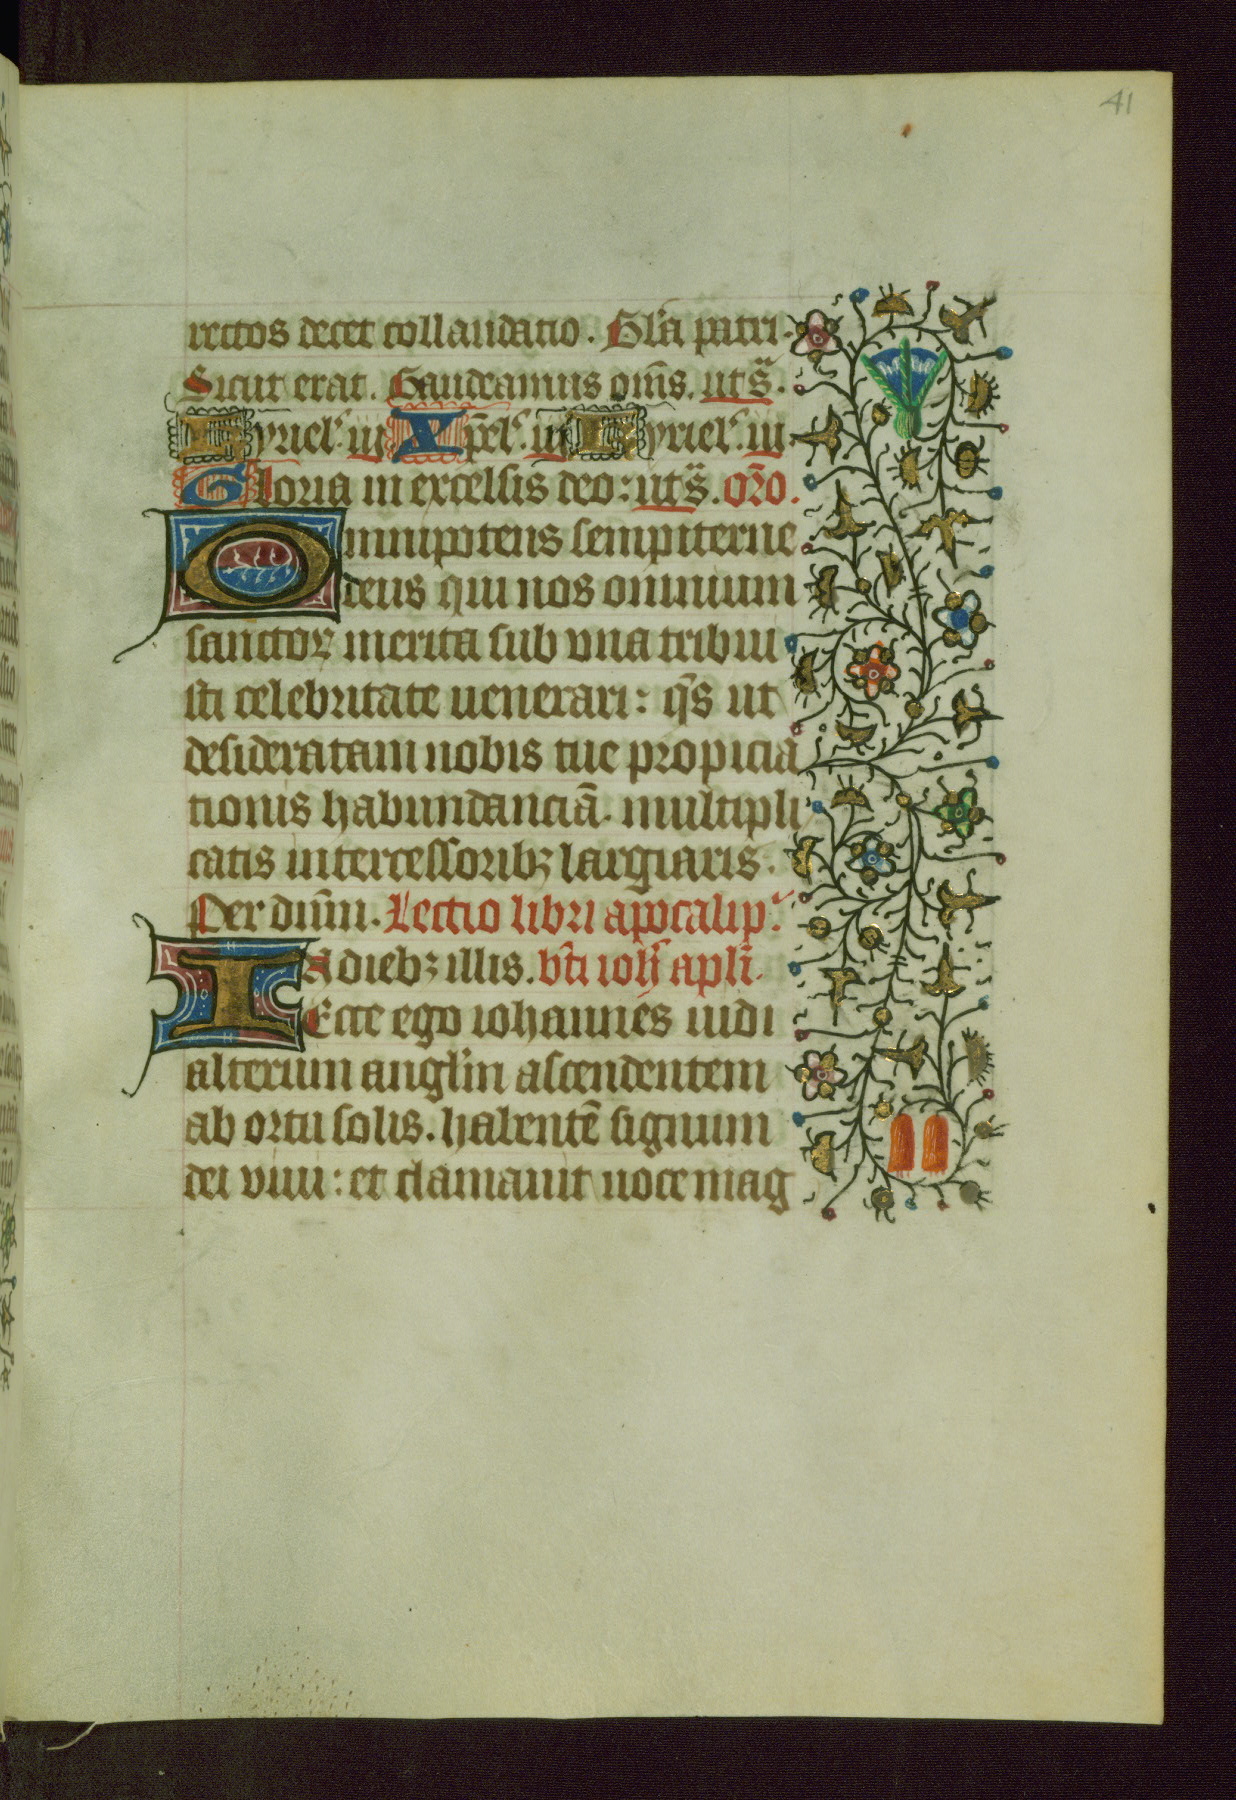 41
rectos decet collaudatio. Gl̄a patri.
Sicut erat. Gaudeamus om̄s. ut s̄.
Kyriel. iij Xp̄el. iij Kyriel. iij.
Gloria in excelsis deo: ut s̄. or̄o.
Omnipotens sempiterne
deus qui nos omnium
sanctoꝝ merita sub una tribui
sti celebritate uenerari: q̄s ut
desideratam nobis tue propicia
tionis habundanciā. multipli
catis intercessoribꝫ largiaris.
Per dn̄m. Lectio libri apocalip.
In diebꝫ illis. bt̄i ioh̄ apl̄i.
Ecce ego iohannes uidi
alterum angl̄m ascendentem
ab ortu solis. habentē signum
dei viui: et clamauit uoce mag